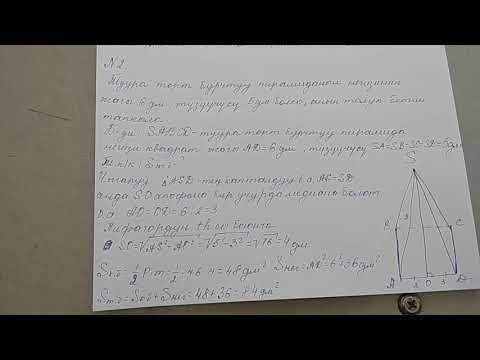 №2.
Туура төрт бурчтуу пирамиданын негизинин
жагы 6 дм, түздүүчүсү 5 дм болсо, анын толук бетин
тапкыла.
Б-ди SABCD - туура төрт бурчтуу пирамида
негизи квадрат жагы AD=6 дм, түздүүчүсү SA=SB=SC=SD=5 дм
Т к/к: Sт.б-?
Чыгаруу △ASD - тең капталдуу б.а. AS=SD
анда SO апофема бир учурда медиана болот
б.а AO=OD=6:2=3
Пифагордун th-сы боюнча
SO=√AS²-AO²=√5²-3²=√16=4 дм
Sк.б=½P·m=½·4·6·4=48 дм² Sнег=AD²=6²=36 дм²
Sт.б=Sк.б+Sнег=48+36=84 дм²
S
5
B C
A 3 O 3 D